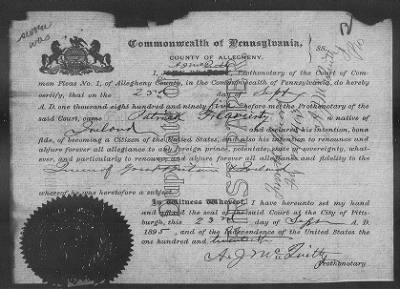 Commonwealth of Pennsylvania,
COUNTY OF ALLEGHENY.
SS.
I, Prothonotary of the Court of Com-
mon Pleas No. 1, of Allegheny County, in the Commonwealth of Pennsylvania, do hereby
certify, that on the 23d day of Sept
A. D. one thousand eight hundred and ninety five before me the Prothonotary of the
said Court, came Patrick a native of
Ireland and declared his intention, bona
fide, of becoming a Citizen of the United States, and also his intention to renounce and
abjure forever all allegiance to any foreign prince, potentate, state or sovereignty, what-
ever, and particularly to renounce and abjure forever all allegiance and fidelity to the
Queen of Great Britain & Ireland
whereof he was heretofore a subject.
In Witness Whereof, I have hereunto set my hand
and affixed the seal of the said Court at the City of Pitts-
burgh, this 23d day of Sept A. D.
1895, and of the Independence of the United States the
one hundred and
Prothonotary